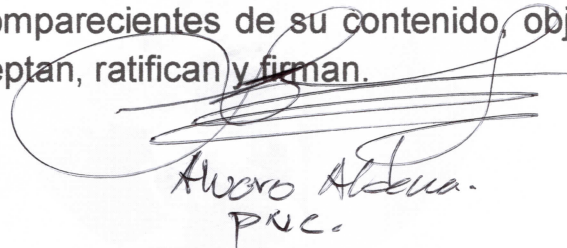 omparecientes de su contenido, obj
eptan, ratifican y firman.
Alvaro Aldana.
PNC.